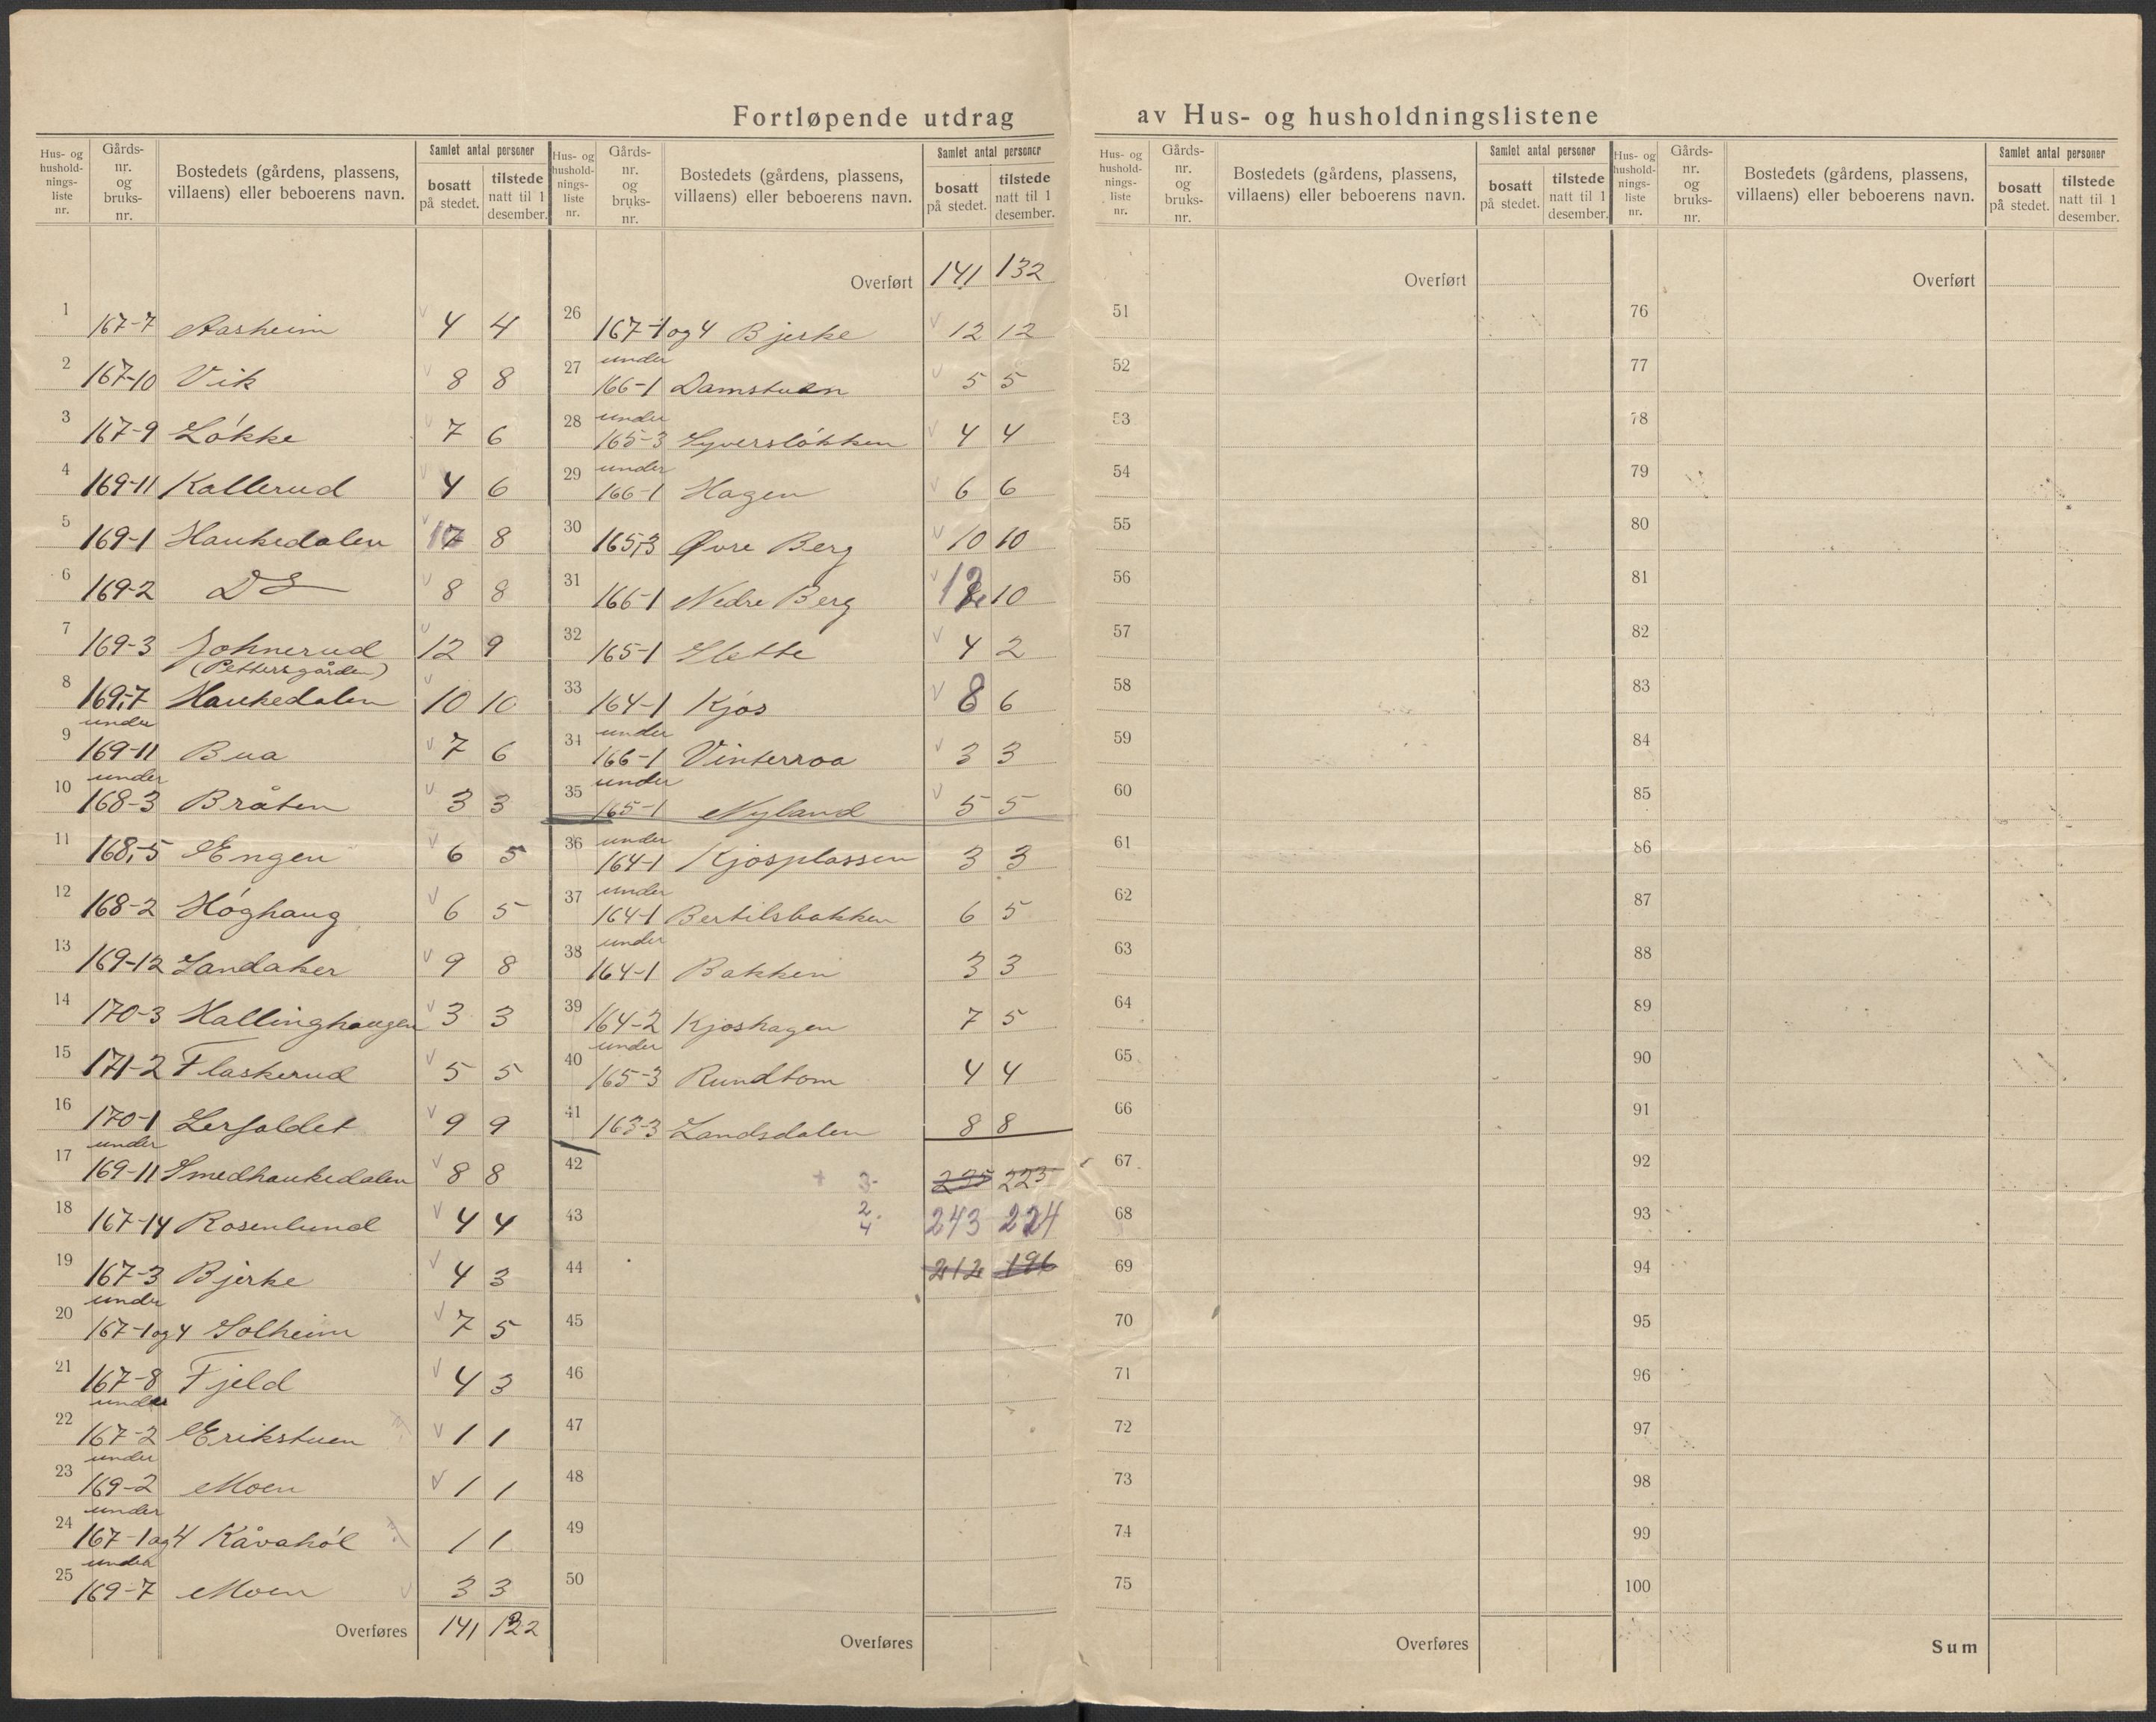 Fortløpende utdrag av Hus- og husholdningslistene
Hus- og hushold-nings-liste nr. Gårds-nr. og bruks-nr. Bostedets (gårdens, plassens, villaens) eller beboerens navn. Samlet antal personer bosatt på stedet. tilstede natt til 1 desember.
1 167-7 Aasheim 4 4
2 167-10 Vik 8 8
3 167-9 Løkke 7 6
4 169-11 Kallerud 4 6
5 169-1 Haukedalen 8
6 169-2 Do 8 8
7 169-3 Johnerud 12 9
(Pettersgården)
8 169,-7 Haukedalen 10 10
under
9 169-11 Bua 7 6
under
10 168-3 Bråten 3 3
11 168,-5 Engen 6 5
12 168-2 Høghaug 6 5
13 169-12 Sandaker 9 8
14 170-3 Hallinghaugen 3 3
15 171-2 Flaskerud 5 5
16 170-1 Lerfaldet 9 9
under
17 169-11 Smedhaukedalen 8 8
18 167-14 Rosenlund 4 4
19 167-3 Bjerke 4 3
under
20 167-1og4 Solheim 7 5
21 167-8 Fjeld 4 3
under
22 167-2 Erikstuen 1 1
under
23 169-2 Moen 1 1
under
24 167-1og4 Kåvahøl 1 1
under
25 169-7 Moen 3 3
Overføres 141 132
Hus- og hushold-nings-liste nr. Gårds-nr. og bruks-nr. Bostedets (gårdens, plassens, villaens) eller beboerens navn. Samlet antal personer bosatt på stedet. tilstede natt til 1 desember.
Overført 141 132
26 167-1og4 Bjerke 12 12
under
27 166-1 Damstuen 5 5
under
28 165-3 Syversløkken 4 4
under
29 166-1 Hagen 6 6
30 165,3 Øvre Berg 10 10
31 166-1 Nedre Berg 10
32 165-1 Slette 4 2
33 164-1 Kjøs 8 6
under
34 166-1 Vinterroa 3 3
under
35 165-1 Nyland 5 5
under
36 164-1 Kjosplassen 3 3
under
37 164-1 Bertilsbakken 6 5
under
38 164-1 Bakken 3 3
39 164-2 Kjoshagen 7 5
under
40 165-3 Rundtom 4 4
41 163-3 Landsdalen 8 8
42 + 3 235 223
43 2 4 243 224
44 212 196
45
46
47
48
49
50
Overføres
Hus- og hushold-nings-liste nr. Gårds-nr. og bruks-nr. Bostedets (gårdens, plassens, villaens) eller beboerens navn. Samlet antal personer bosatt på stedet. tilstede natt til 1 desember.
Overført
51
52
53
54
55
56
57
58
59
60
61
62
63
64
65
66
67
68
69
70
71
72
73
74
75
Overføres
Hus- og hushold-nings-liste nr. Gårds-nr. og bruks-nr. Bostedets (gårdens, plassens, villaens) eller beboerens navn. Samlet antal personer bosatt på stedet. tilstede natt til 1 desember.
Overført
76
77
78
79
80
81
82
83
84
85
86
87
88
89
90
91
92
93
94
95
96
97
98
99
100
Sum